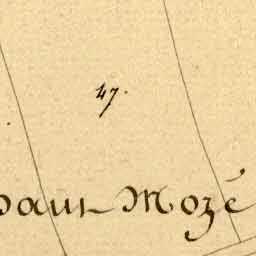 47.
haut Mozé